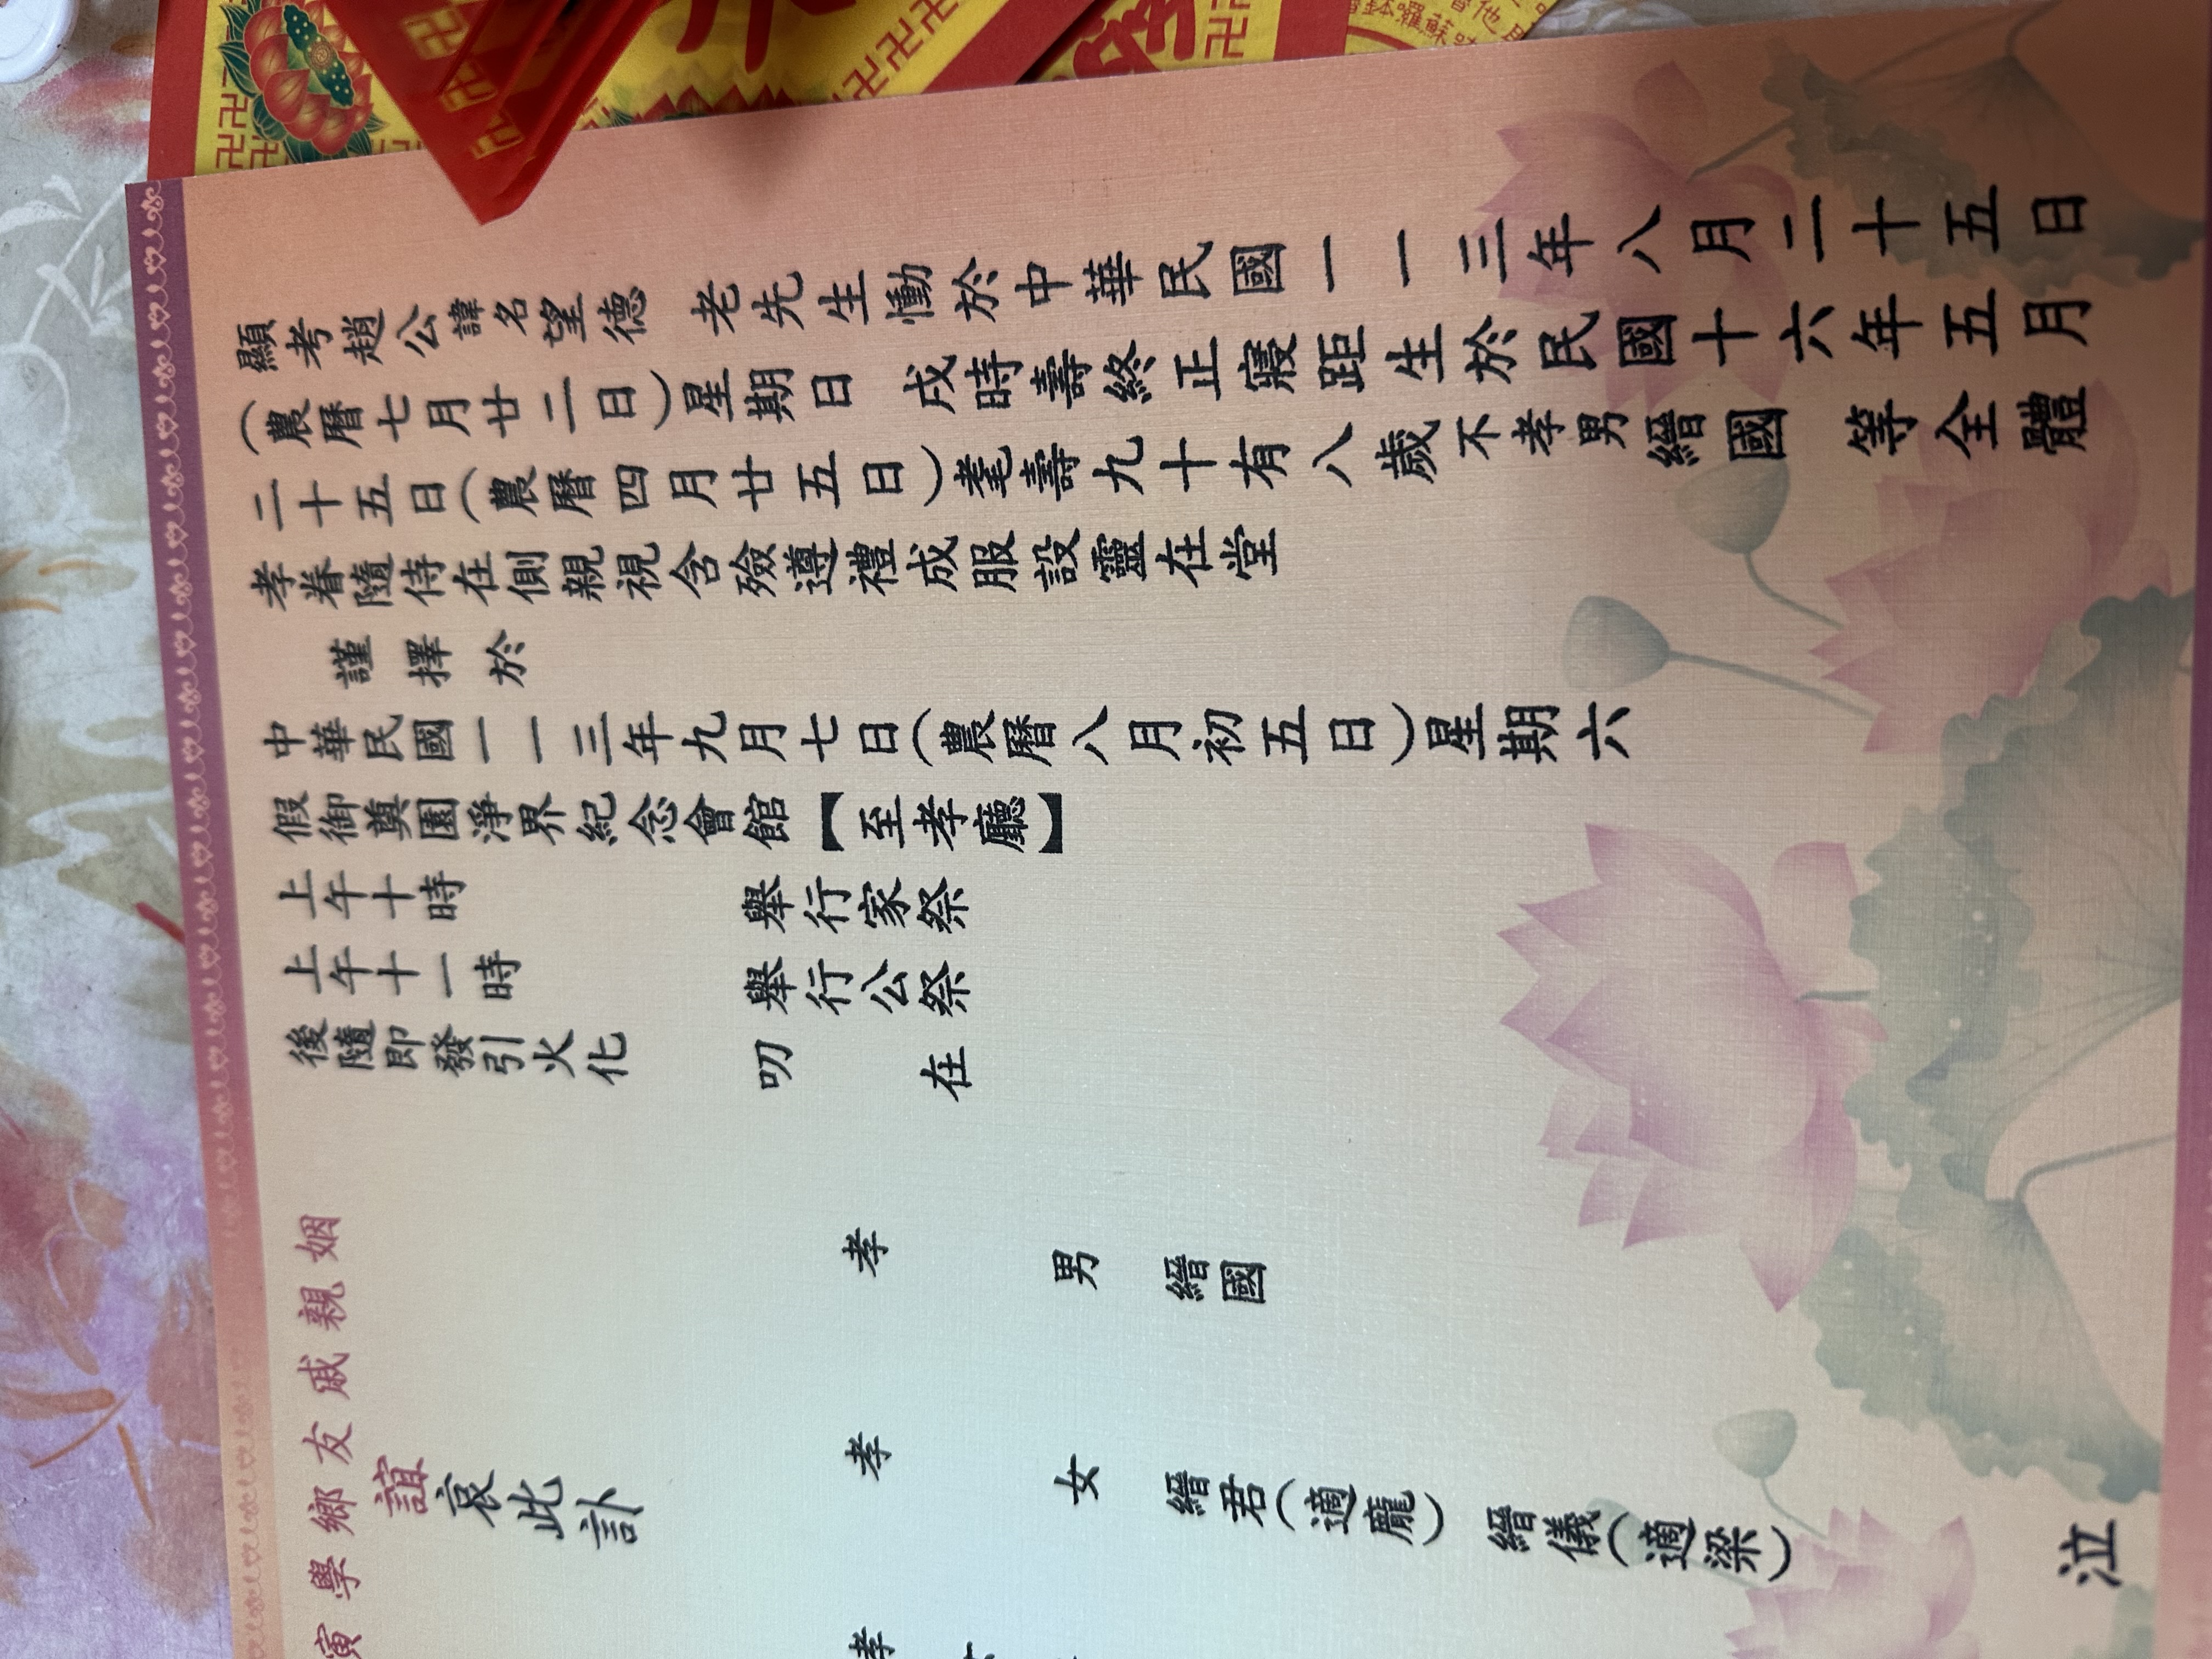 顯考趙公諱名望德 老先生慟於中華民國一一三年八月二十五日
(農曆七月廿二日)星期日 戌時壽終正寢距生於民國十六年五月
二十五日(農曆四月廿五日)耄壽九十有八歲不孝男縉國 等全體
孝眷隨侍在側親視含殮遵禮成服設靈在堂
謹擇於
中華民國一一三年九月七日(農曆八月初五日)星期六
假御奠園淨界紀念會館【至孝廳】
上午十時 舉行家祭
上午十一時 舉行公祭
後隨即發引火化 叨 在
姻親戚友鄉學寅
誼
哀此訃
孝 男 縉國
孝 女 縉君(適龐) 縉儀(適梁)
泣
孝